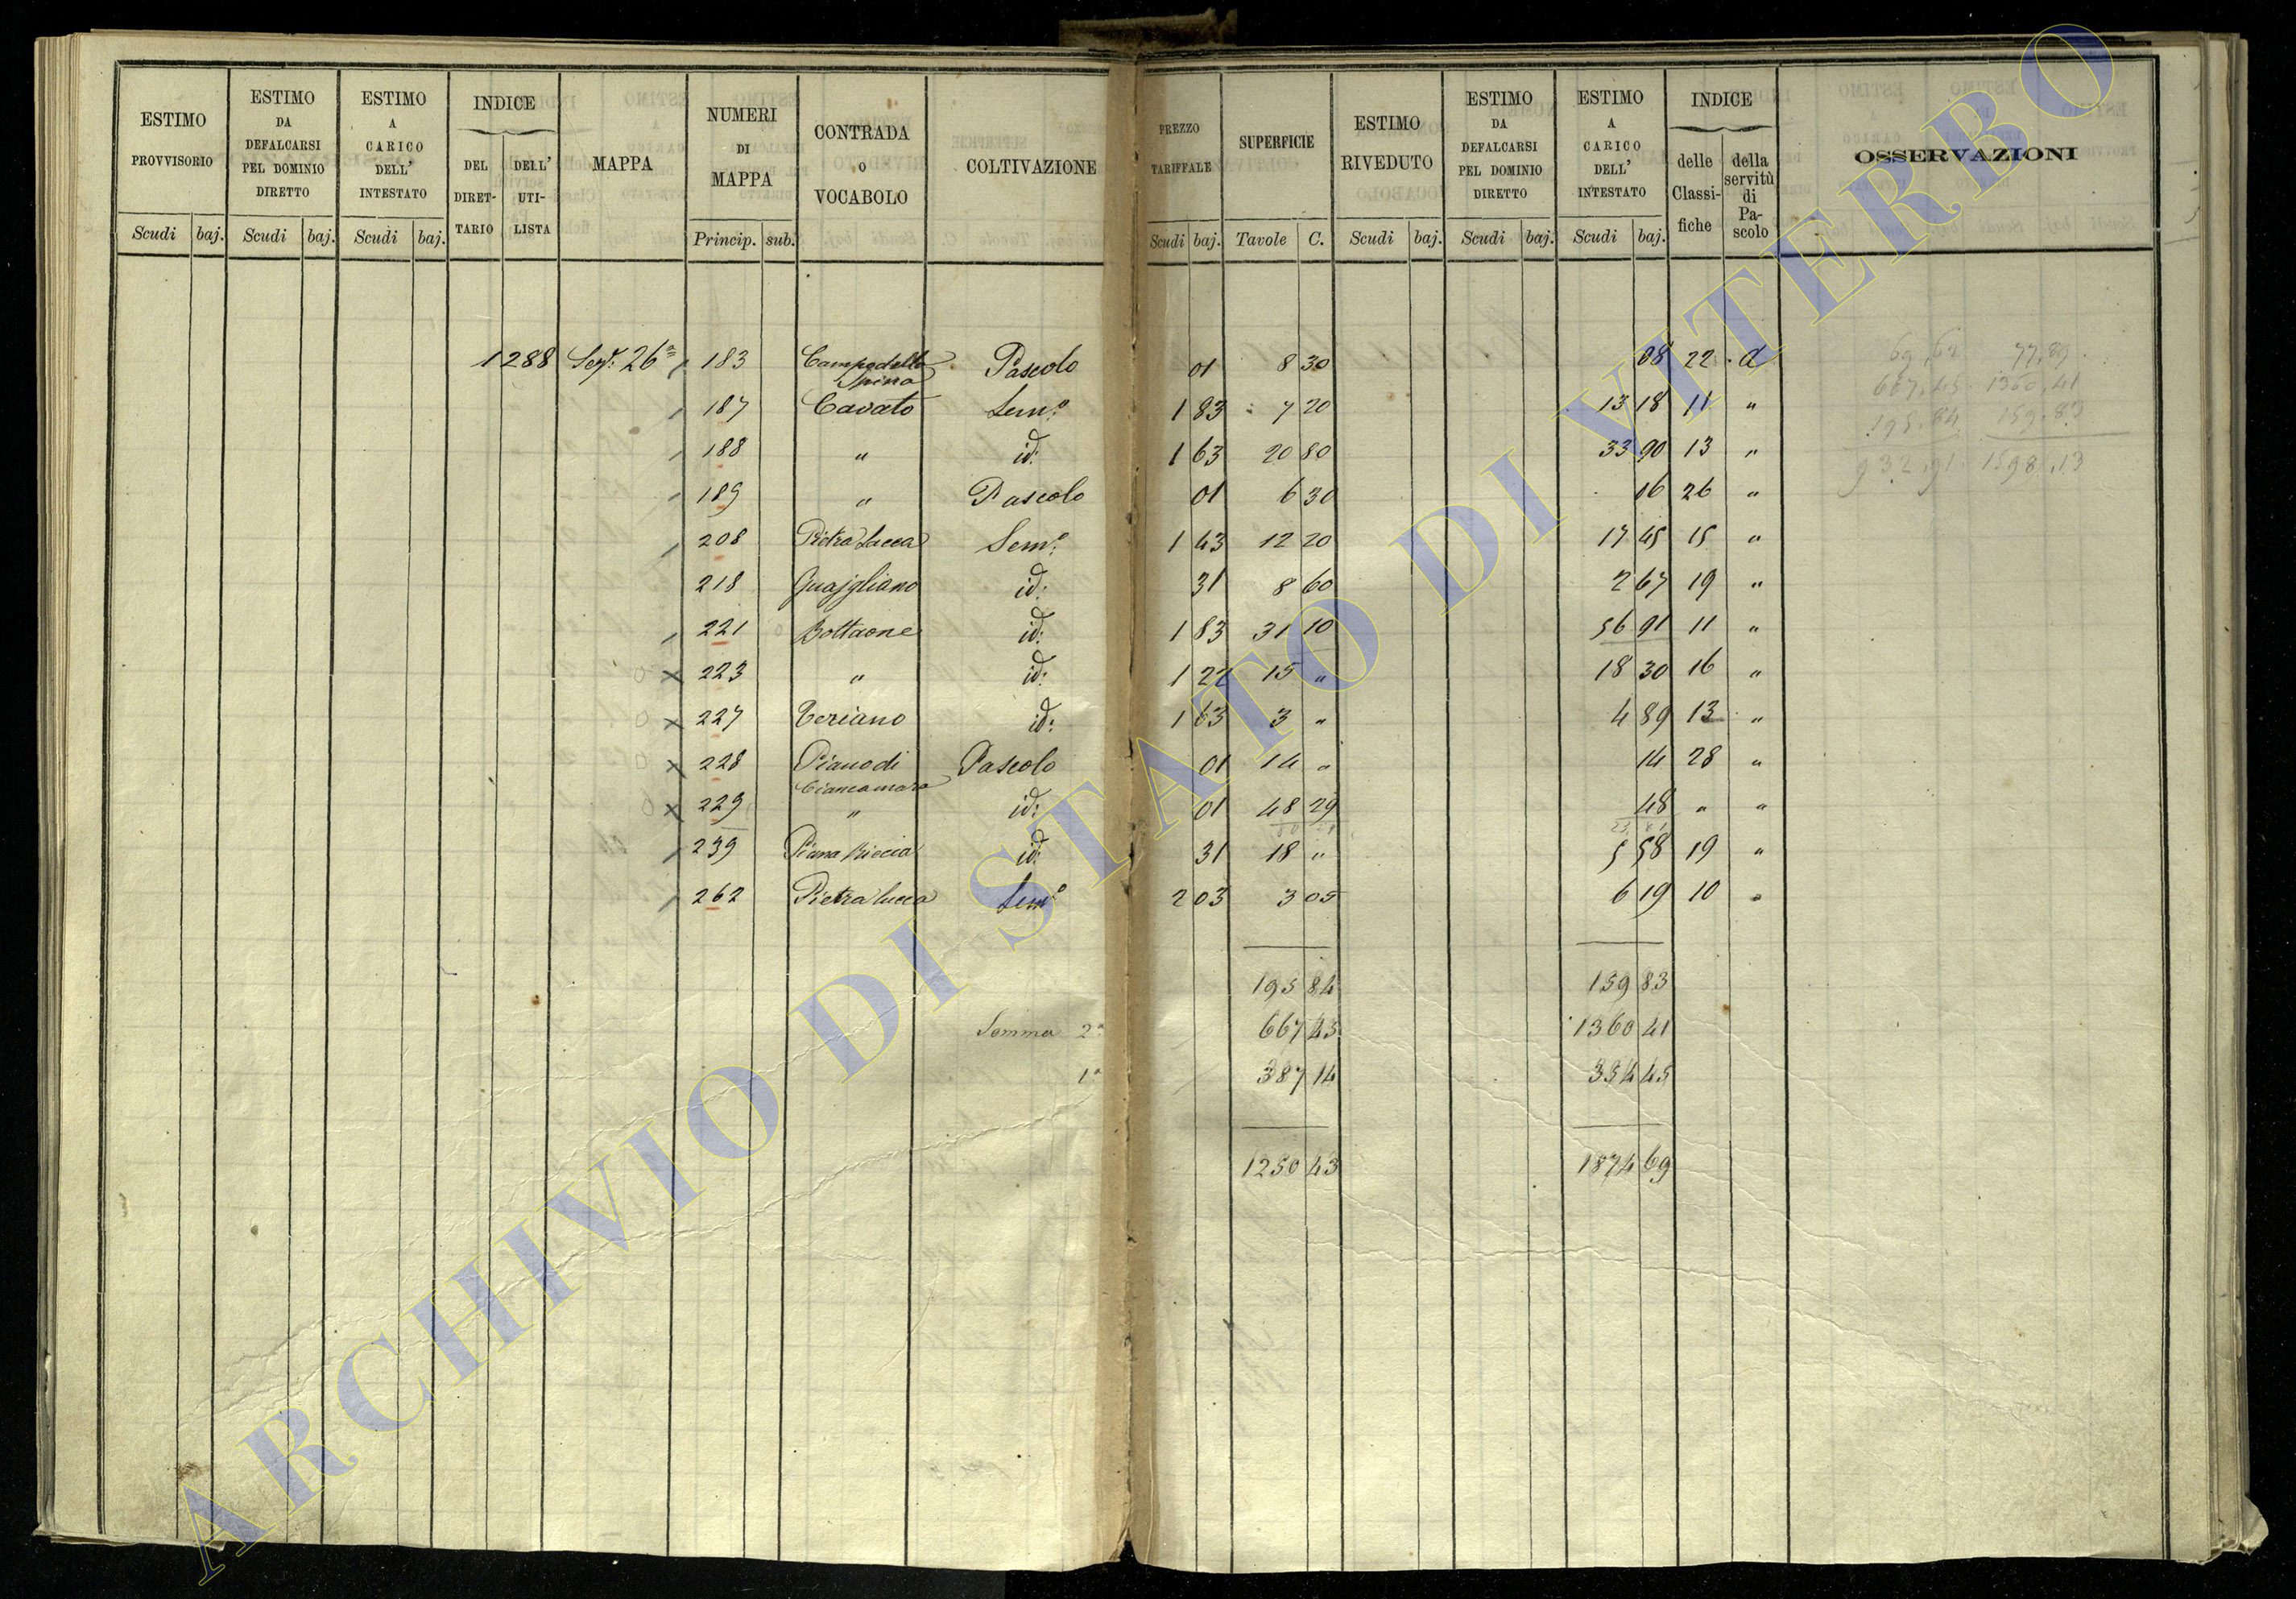 ESTIMO PROVVISORIO
ESTIMO DA DEFALCARSI PEL DOMINIO DIRETTO
ESTIMO A CARICO DELL' INTESTATO
INDICE
DEL DIRETTARIO
DELL' UTILISTA
MAPPA
NUMERI DI MAPPA
CONTRADA O VOCABOLO
COLTIVAZIONE
PREZZO TARIFFALE
SUPERFICIE
ESTIMO RIVEDUTO
ESTIMO DA DEFALCARSI PEL DOMINIO DIRETTO
ESTIMO A CARICO DELL' INTESTATO
INDICE
delle Classifiche
della servitù di Pascolo
OSSERVAZIONI
Scudi baj. Scudi baj. Scudi baj. Princip. sub. Scudi baj. Tavole C. Scudi baj. Scudi baj. Scudi baj.
1288 Sez: 26ª 183 Campo della Spina Pascolo 01 8 30 08 22 d
187 Cavato Sem:º 1 83 7 20 13 18 11 "
188 " id: 1 63 20 80 33 90 13 "
189 " Pascolo 01 6 30 06 26 "
208 Pietra Lucca Sem:º 1 43 12 20 17 45 15 "
218 id: 31 8 60 2 67 19 "
221 Bottaone id: 1 83 31 10 56 91 11 "
223 " id: 1 22 15 " 18 30 16 "
227 Teriano id: 1 63 3 " 4 89 13 "
228 Piano di Ciancamara Pascolo 01 14 " 14 28 "
229 " id: 01 48 29 48 " "
239 Piana Riccia id: 31 18 " 5 58 19 "
262 Pietra Lucca Sem:º 2 03 3 05 6 19 10 "
195 84 159 83
Somma 2ª 667 43 1360 41
1ª 387 14 354 45
1250 43 1874 69
69,62 77,89
667,45 1360,41
195,84 159,83
932,91 1598,13
ARCHIVIO DI STATO DI VITERBO